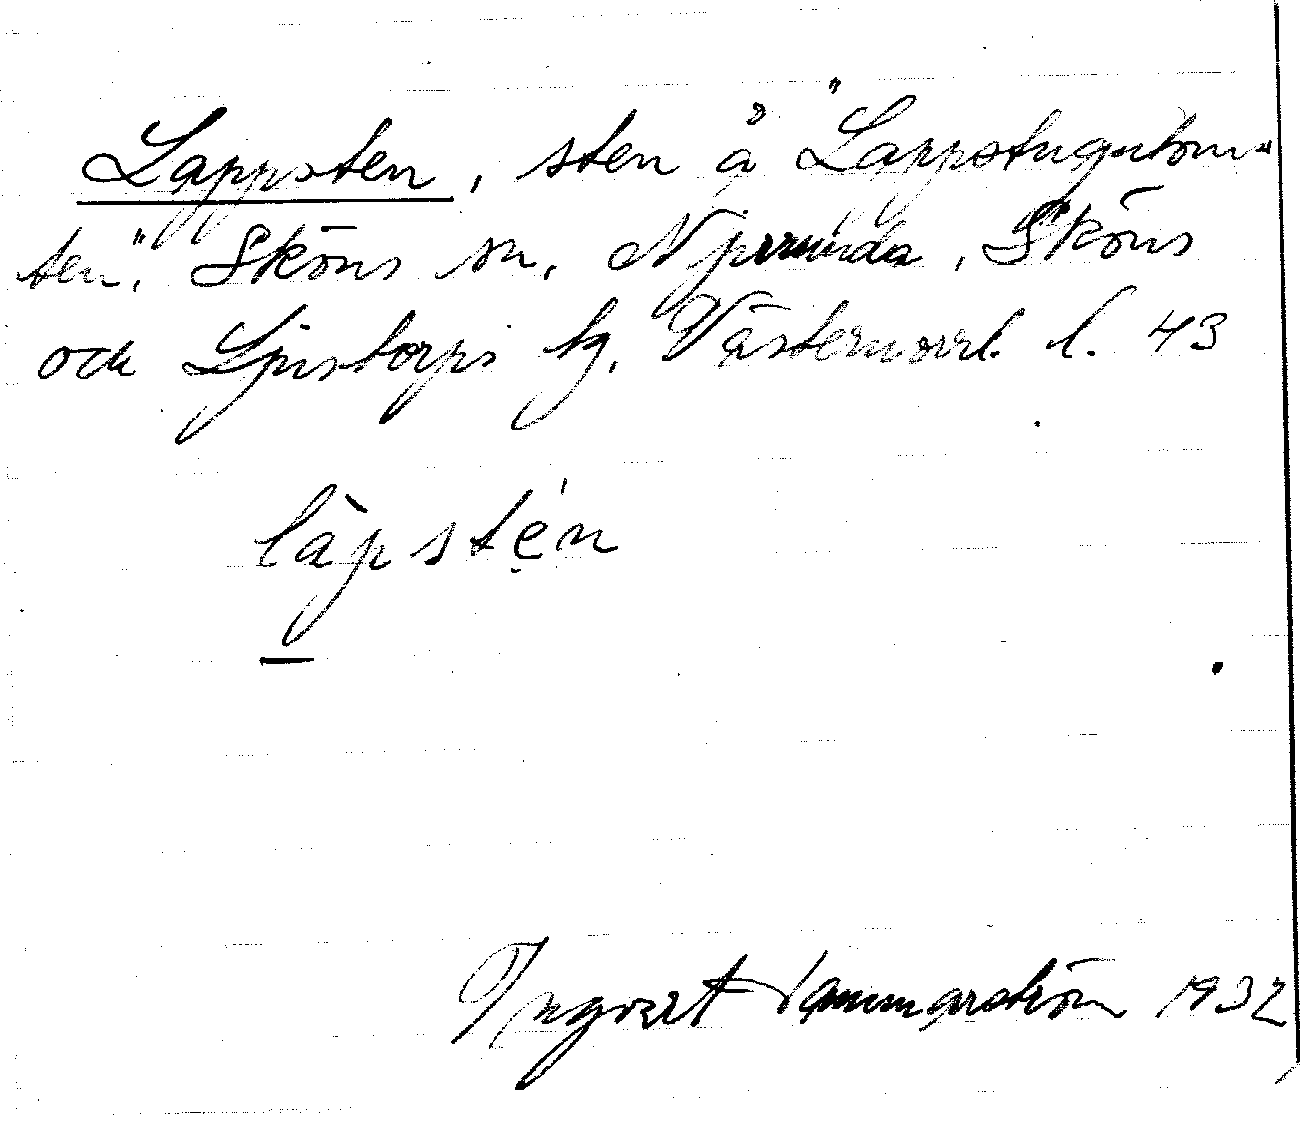 Lappsten, sten å "Lappstugutom-
ten". Sköns sn. Njurunda, Sköns
och Ljustorps tg. Västernorrl. l. 43
làpstén
Ingvart 1932